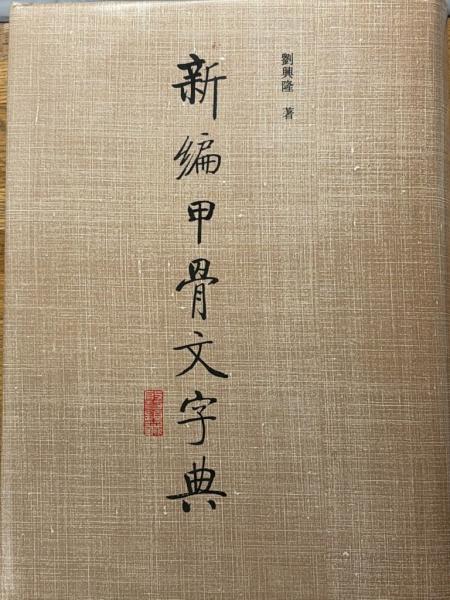 劉興隆 著
新编甲骨文字典